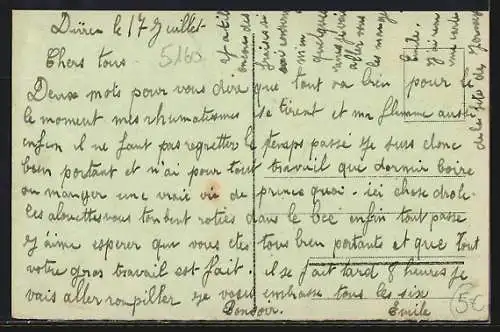 Düren le 17 Juillet
5160
Chers tous
Deux mots pour vous dire que tout va bien pour
le moment mes rhumatismes se tirent et ma flemme aussi
enfin il ne faut pas regretter le temps passé je suis donc
bien portant et n'ai pour tout travail que dormir boire
ou manger une vraie vie de prince quoi. ici chose drole
les alouettes vous tombent roties dans le bec enfin tout passe
J'aime esperer que vous etes tous bien portants et que tout
votre gros travail est fait. il se fait tard 8 heures je
vais aller roupiller je vous embrasse tous les six
Bonsoir. Emile
5€
Emile.